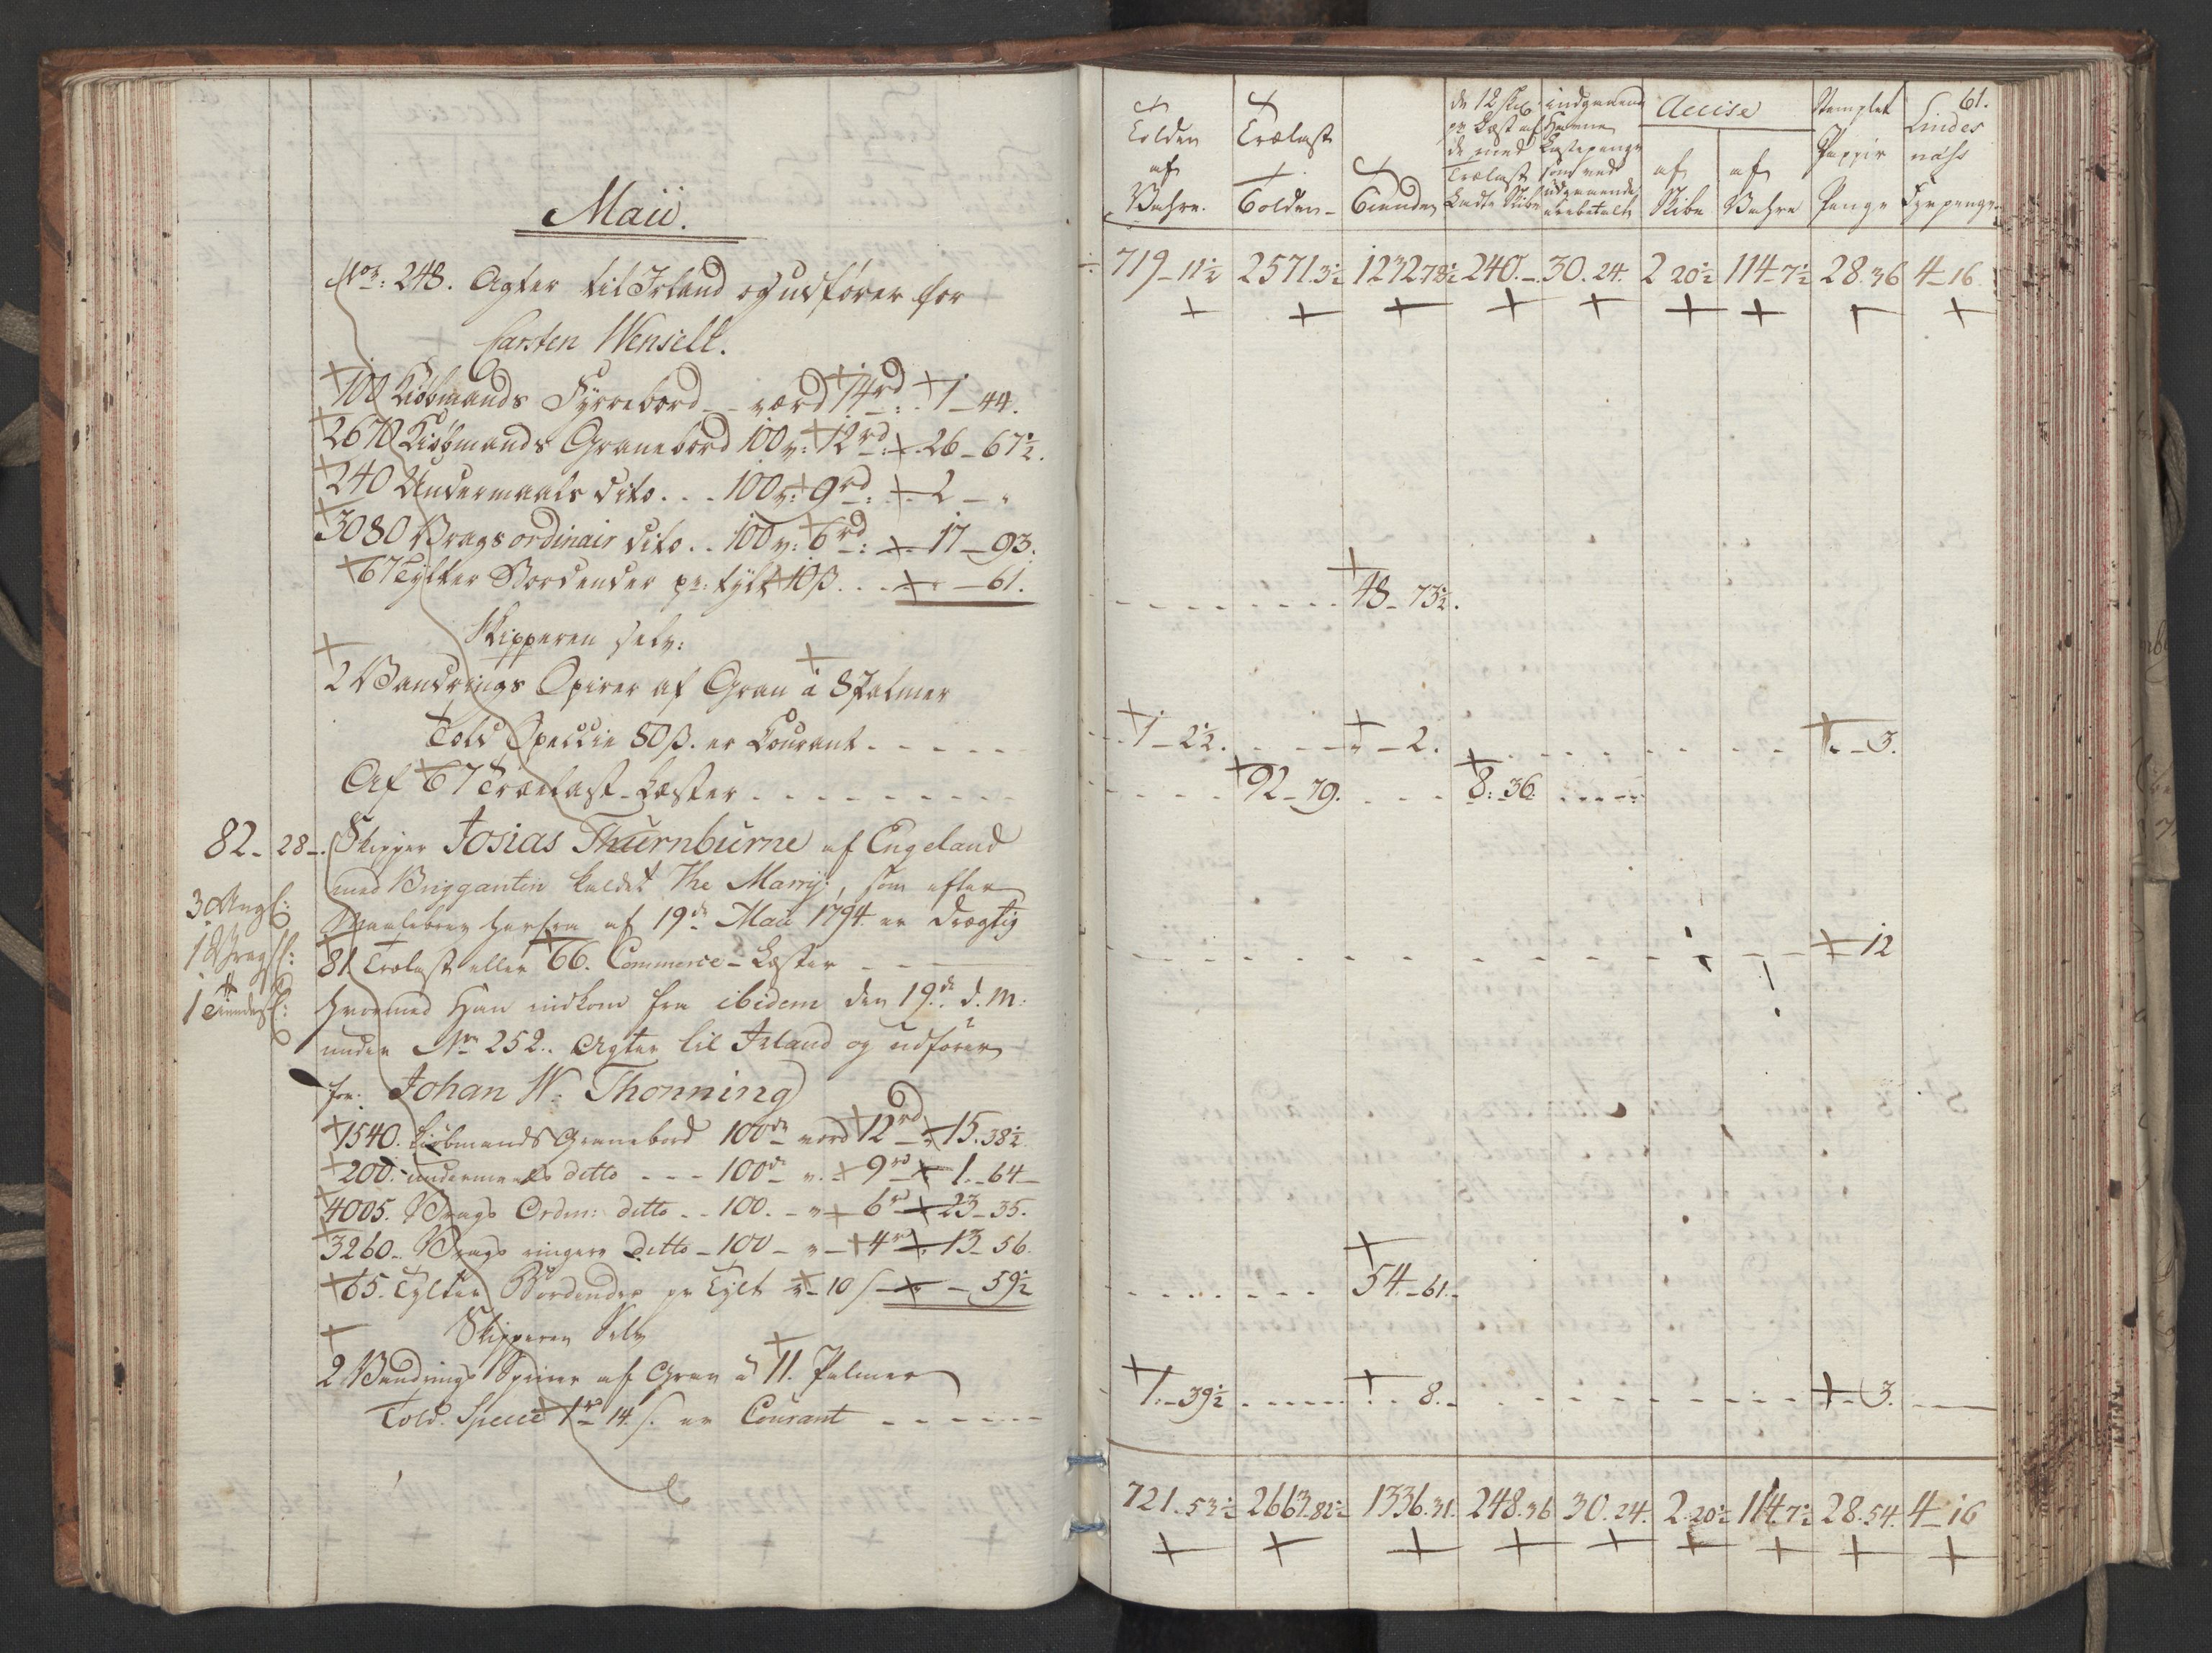 Maii.
No: 248. Agter til Irland og udfører for
Carsten Wensell.
100 Kiøbmands Fyrrebord værd 14 rd: 1 - 44.
2670 Kiøbmands Granebord 100 v: 12 rd: 26 - 67½.
240 Undermaals dito . . . 100 v: 9 rd: 2 - "
3080 Vrags ordinair dito . . 100 v: 6 rd: 17 - 93.
67 Tylter Bordender pr: tylt 10 ß . . . " - 61.
Skipperen selv:
2 Bandrings Spirer af Gran á 8 Palmer
Told Speccie 80 ß. er Courant
Af 67 Trælast-Læster
82. 28. Skipper Josias Thurnburne af Engeland
med Briggantin kaldet The Marry:, som efter
3 Angl:
Maalebrev herfra af 19de Maii 1794 er drægtig
1 Vragsl:
81 Trælast eller 66. Commerce-Læster
1 Tiendesl:
hvormed Han indkom fra ibidem den 19de d. M:
under No 252. Agter til Irland og udfører
for Johan W: Thonning
1540. Kiøbmands Granebord 100de værd 12 rd 15. 38½
200. undermaals ditto - - - 100de v. 9 rd 1. - 64
4005. Vrags Ordin: ditto - - 100. - " 6 rd 23 - 35.
3260. Vrags ringere Ditto - 100 - " - 4 rd 13 - 56.
65. Tylter Bordender pr Tylt " - 10 ß - " - 59½
Skipperen Selv
2 Bandrings Spirer af Gran á 11. Palmer
Told. Specie 1 rd 14 ß. er Courant
61.
Tolden af Vahre.
Trælast Tolden
Tienden
de 12 Skl: pr Læst af de med Trælast Ladte Skibe
indgaaende Havne Lastepenge som ved udgaaende er betalt
Accise
af Skibe
af Vahre
Stemplet Pappir Penge
Lindes næss Fyrpenge
719 - 11½ 2571. 3½ 1232 78½ 240. - 30. 24. 2 20½ 114 - 7½ 28. 36 4 - 16
48 - 73½.
1 - 2½. " - 2. " - 3.
92 - 79. 8: 36
12
54. - 61.
1. - 39½ 8. - 3.
721. 53½ 2663. 82½ 1336. 31. 248. 36 30. 24. 2. 20½ 114. 7½ 28. 54. 4 - 16